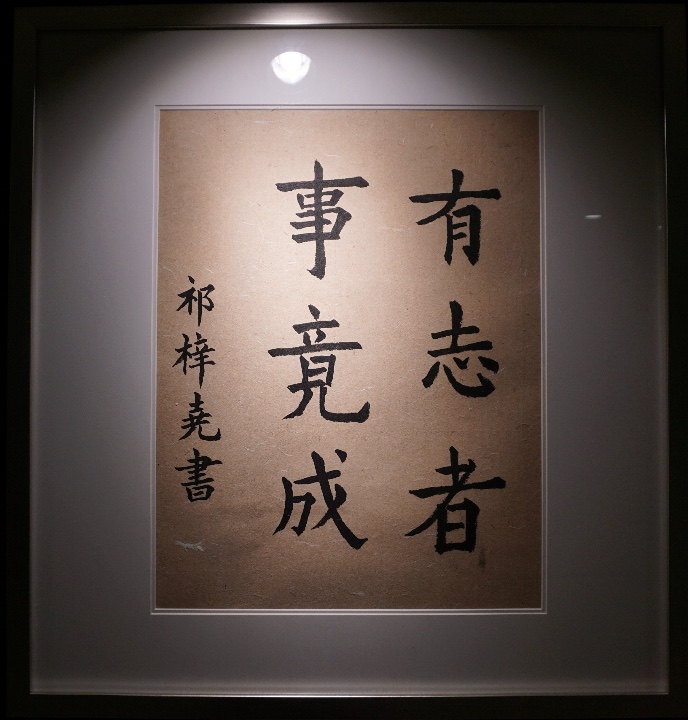 有志者
事竟成
祁梓堯書